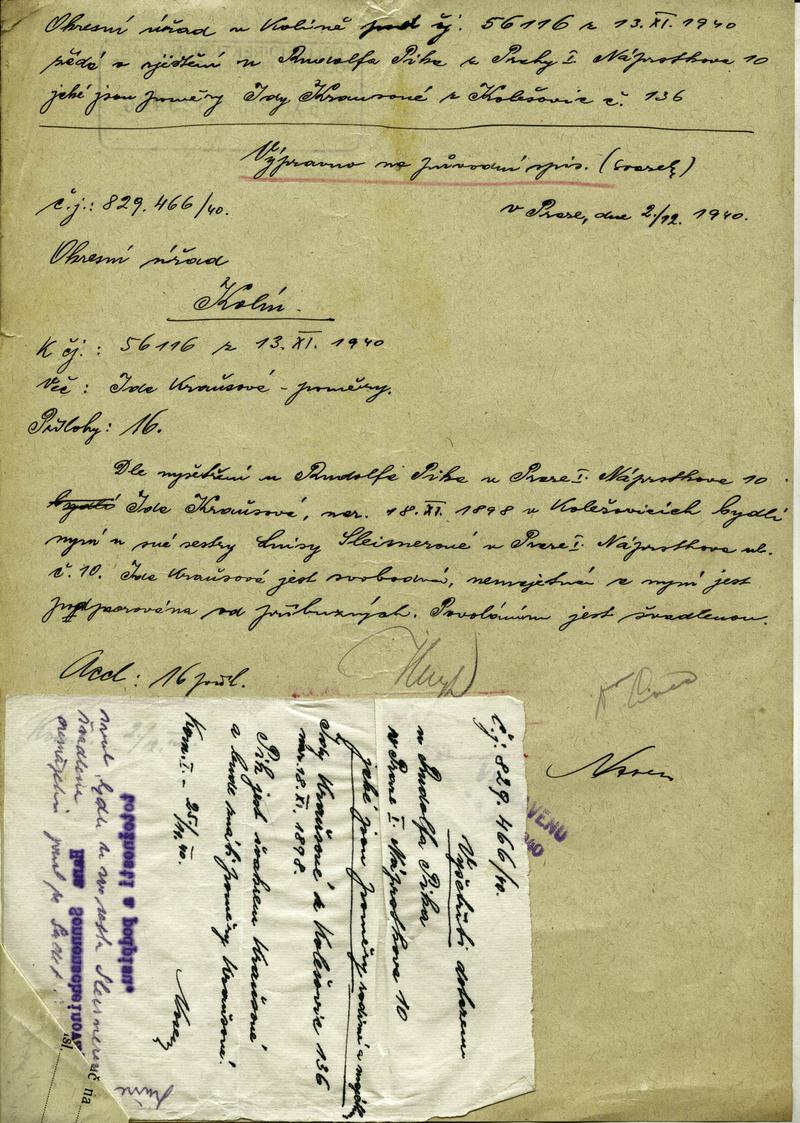 Okresní úřad v Kolíně pod čj. 56116 z 13.XI. 1940
žádá o zjištění u Rudolfa Pika z Prahy I. Náprstkova 10
jaké jsou poměry Idy Krausové z Kolešovic č. 136
Výpravno na původní spis. (svazek)
č.j.: 829.466/40.
v Praze, dne 2./12. 1940.
Okresní úřad
Kolín.
K čj.: 56116 z 13.XI. 1940
Věc: Ida Krausová - poměry.
Přílohy: 16.
Dle vyšetření u Rudolfa Pika v Praze I. Náprstkova 10
bydlí Ida Krausová, nar. 18.XI. 1898 v Kolešovicích bydlí
nyní u své sestry Luisy Steinerové v Praze I. Náprstkova ul.
č. 10. Ida Krausová jest svobodná, nemajetná a nyní jest
podporována od příbuzných. Povoláním jest švadlenou.
Acd: 16 příl.
č.j. 829.466/40.
Vyšetřiti dotazem
u Rudolfa Pika
v Praze I Náprstkova 10
jaké jsou poměry rodinné a majetk.
Idy Krausové z Kolešovic 136
nar. 18.XI. 1898.
Pik jest švahrem Krausové
a bude znáti poměry Krausové.
Kom. I. - 25./11. 40.
totožnosti a podpisu